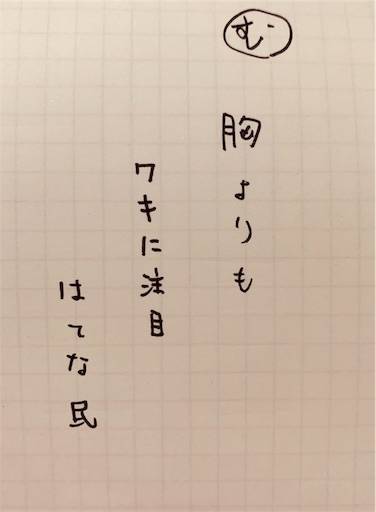 む
胸よりも
ワキに注目
はてな民